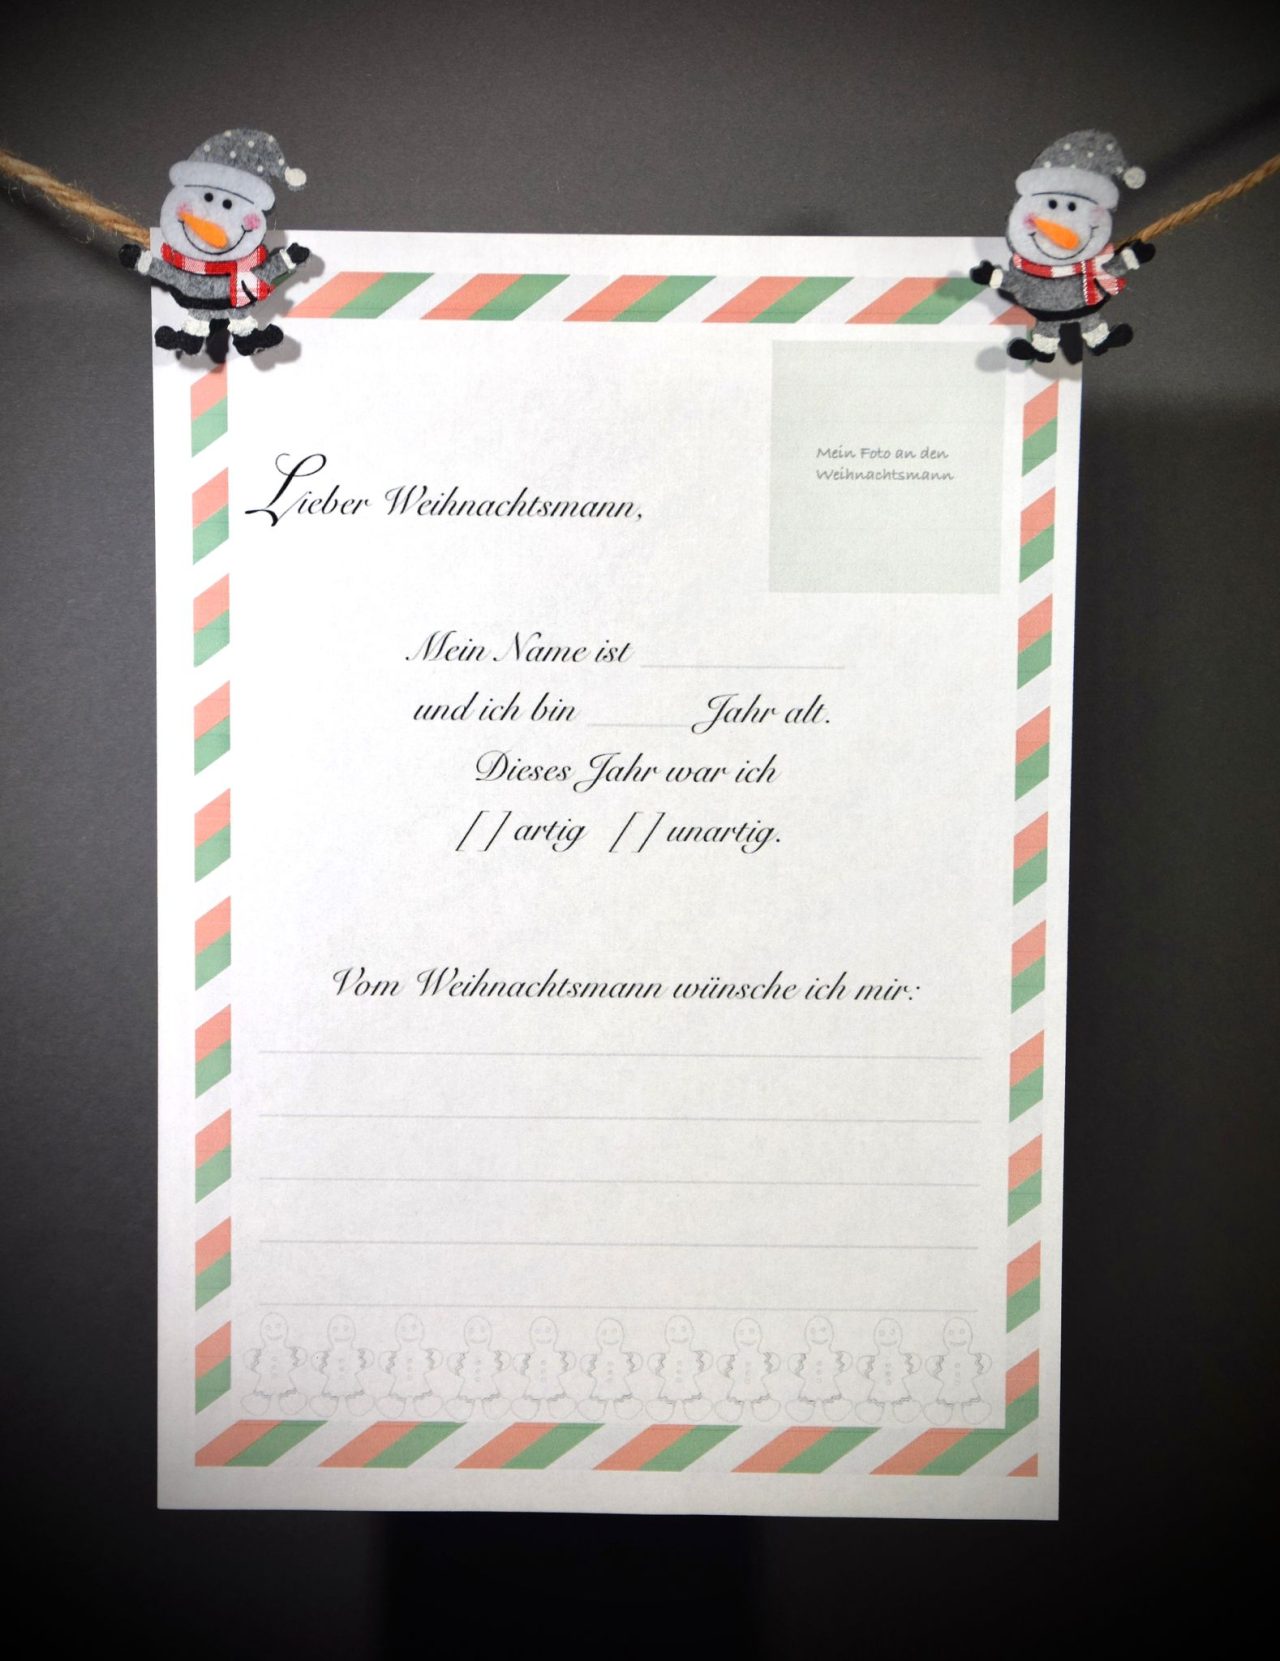 Mein Foto an den
Weihnachtsmann
Lieber Weihnachtsmann,
Mein Name ist ____________
und ich bin ______ Jahr alt.
Dieses Jahr war ich
[ ] artig [ ] unartig.
Vom Weihnachtsmann wünsche ich mir: